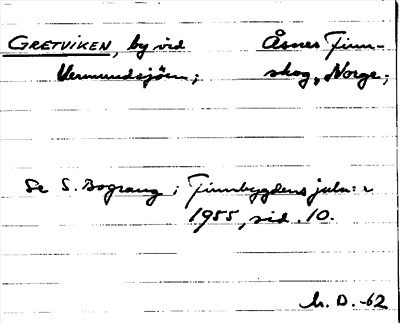 GRETVIKEN, by vid Åsnes Finn-
Vermundsjön; skog, Norge;
Se S. Bograng i Finnbygdens julnr
1955, sid. 10.
h. D. -62